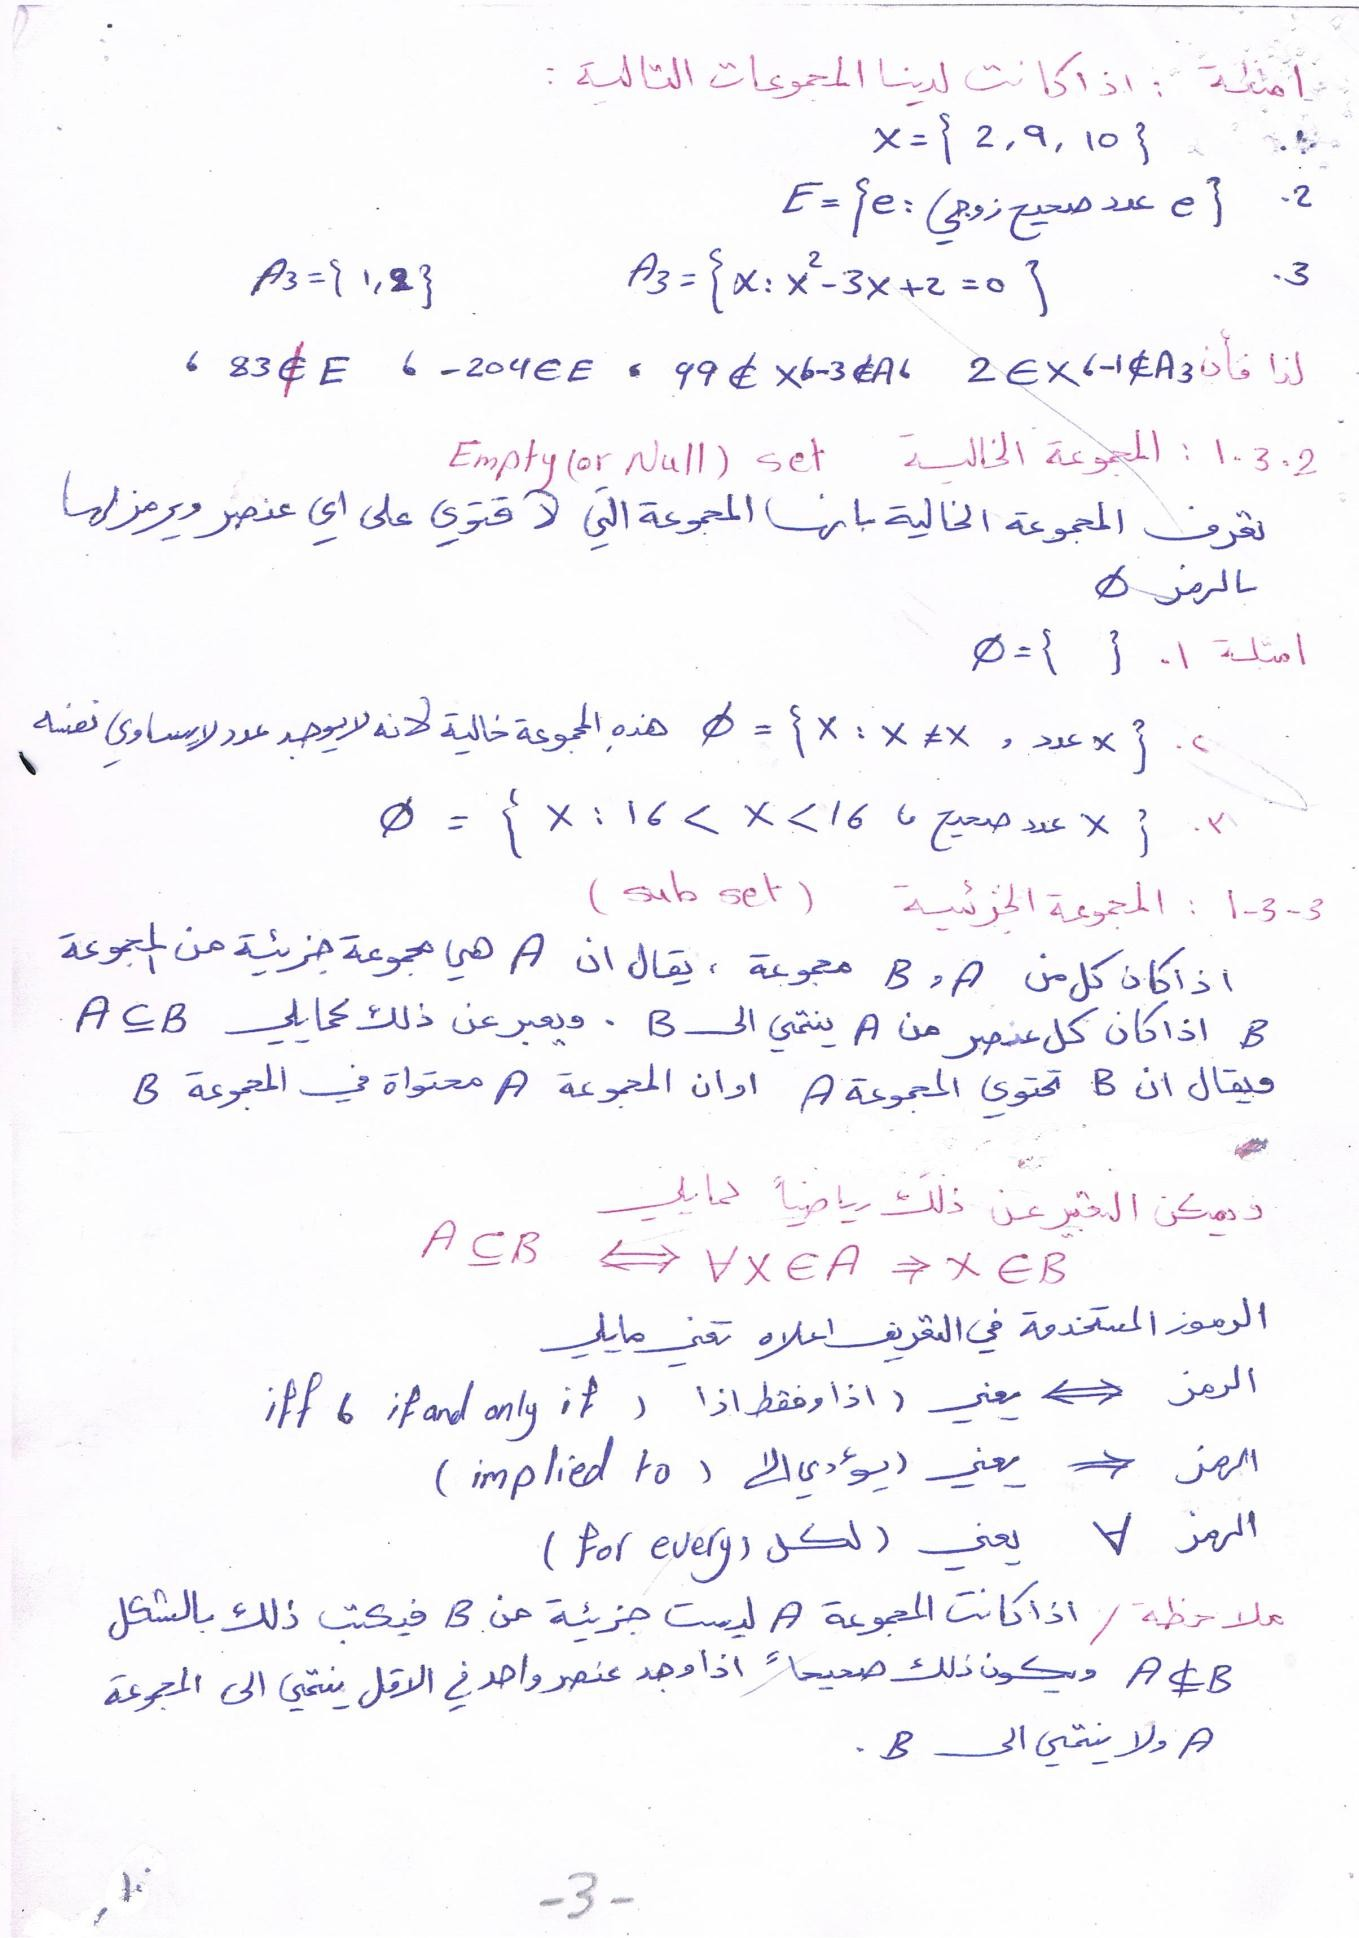 امثلة : اذا كانت لدينا المجموعات التالية :
1. X = { 2, 9, 10 }
2. E = {e : عدد صحيح زوجي e }
3. A3 = {x : x² - 3x + 2 = 0 } A3 = { 1, 2 }
لذا فأن 2 ∈ X ، -1 ∉ A3 ، -3 ∉ A ، 99 ∉ X ، -204 ∈ E ، 83 ∉ E ،
1.3.2 : المجموعة الخالية Empty (or Null) set
تعرف المجموعة الخالية بانها المجموعة التي لا تحتوي على اي عنصر ويرمز لها
بالرمز Ø
امثلة ١. Ø = { }
٢. Ø = {X : X ≠ X , عدد X } هذه المجموعة خالية لانه لا يوجد عدد لا يساوي نفسه
٣. Ø = { X : 16 < X < 16 ، عدد صحيح X }
1-3-3 : المجموعة الجزئية ( sub set )
اذا كان كل من A و B مجموعة ، يقال ان A هي مجموعة جزئية من المجموعة
B اذا كان كل عنصر من A ينتمي الى B . ويعبر عن ذلك كمايلي A ⊆ B
ويقال ان B تحتوي المجموعة A او ان المجموعة A محتواة في المجموعة B
ويمكن التعبير عن ذلك رياضياً كمايلي
A ⊆ B ⟺ ∀ X ∈ A ⇒ X ∈ B
الرموز المستخدمة في التعريف اعلاه تعني مايلي
الرمز ⟺ يعني ( اذا وفقط اذا ) if and only if ، iff
الرمز ⇒ يعني (يؤدي الى ) (implied to)
الرمز ∀ يعني ( لكل , for every)
ملاحظة / اذا كانت المجموعة A ليست جزئية من B فيكتب ذلك بالشكل
A ⊈ B ويكون ذلك صحيحاً اذا وجد عنصر واحد في الاقل ينتمي الى المجموعة
A ولا ينتمي الى B .
-3-